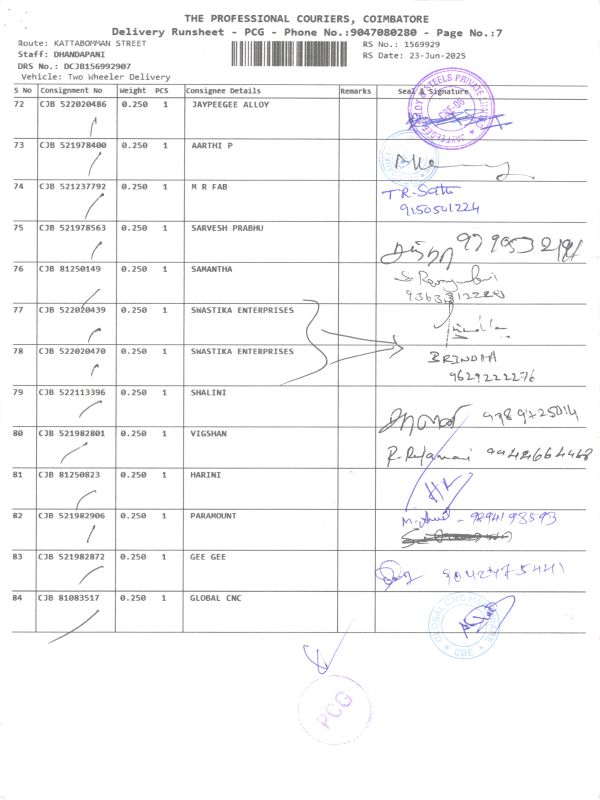 THE PROFESSIONAL COURIERS, COIMBATORE
Delivery Runsheet - PCG - Phone No.:9047080280 - Page No.:7
Route: KATTABOMMAN STREET
Staff: DHANDAPANI
DRS No.: DCJB156992907
Vehicle: Two Wheeler Delivery
RS No.: 1569929
RS Date: 23-Jun-2025
S No Consignment No Weight PCS Consignee Details Remarks Seal & Signature
72 CJB 522020486 0.250 1 JAYPEEGEE ALLOY
73 CJB 521978400 0.250 1 AARTHI P
74 CJB 521237792 0.250 1 M R FAB
9150501224
75 CJB 521978563 0.250 1 SARVESH PRABHU
76 CJB 81250149 0.250 1 SAMANTHA
77 CJB 522020439 0.250 1 SWASTIKA ENTERPRISES
78 CJB 522020470 0.250 1 SWASTIKA ENTERPRISES
BRINDAA
9629222276
79 CJB 522113396 0.250 1 SHALINI
80 CJB 521982801 0.250 1 VIGSHAN
81 CJB 81250823 0.250 1 HARINI
82 CJB 521982906 0.250 1 PARAMOUNT
83 CJB 521982872 0.250 1 GEE GEE
9042475441
84 CJB 81083517 0.250 1 GLOBAL CNC
PCG